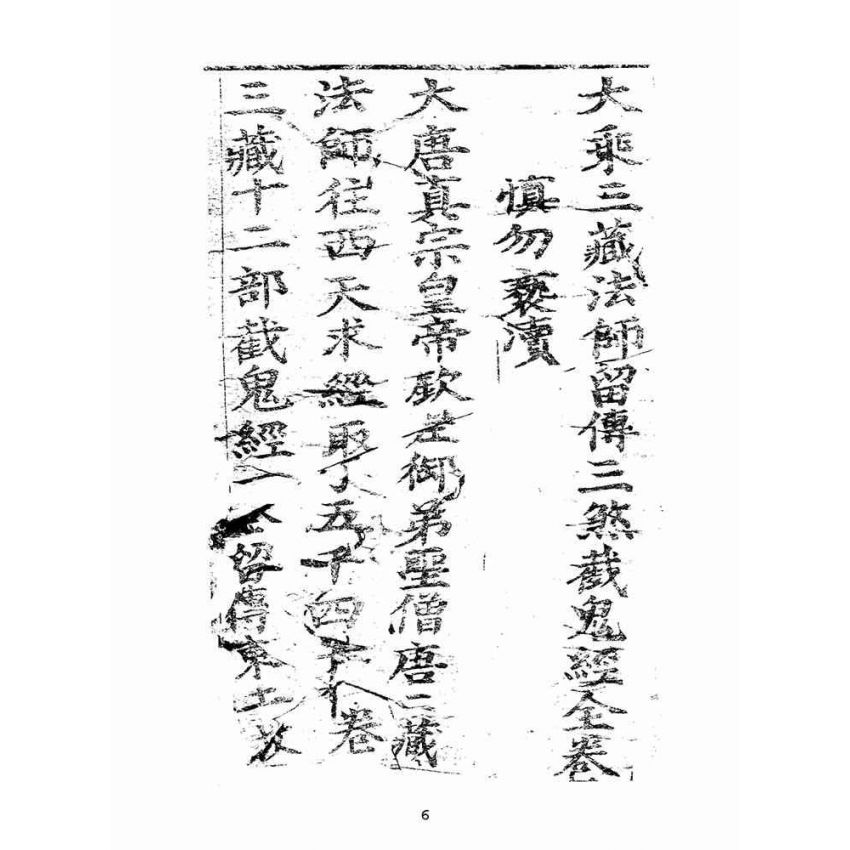 大乘三藏法師留傳三煞截鬼經全卷
慎勿褻瀆
大唐真宗皇帝欽差御弟聖僧唐三藏
法師往西天求經取了五千四十卷
三藏十二部截鬼經一 留傳東土
6